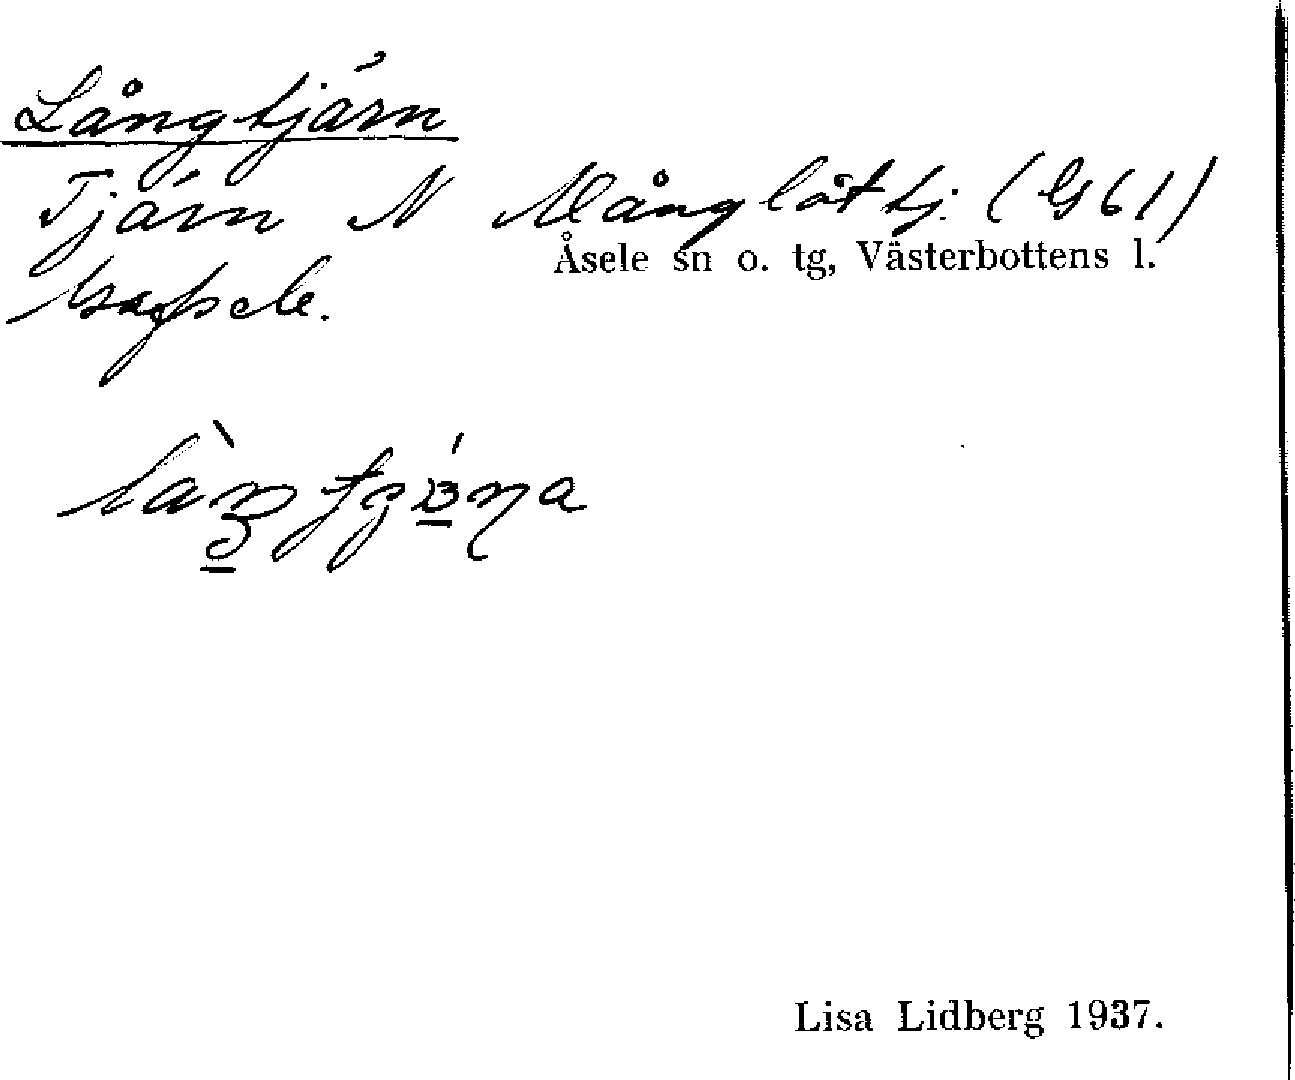 Långtjärn
Tjärn N Månglättj. (G61)
Åsele sn o. tg, Västerbottens l.
Gafsele.
Lisa Lidberg 1937.